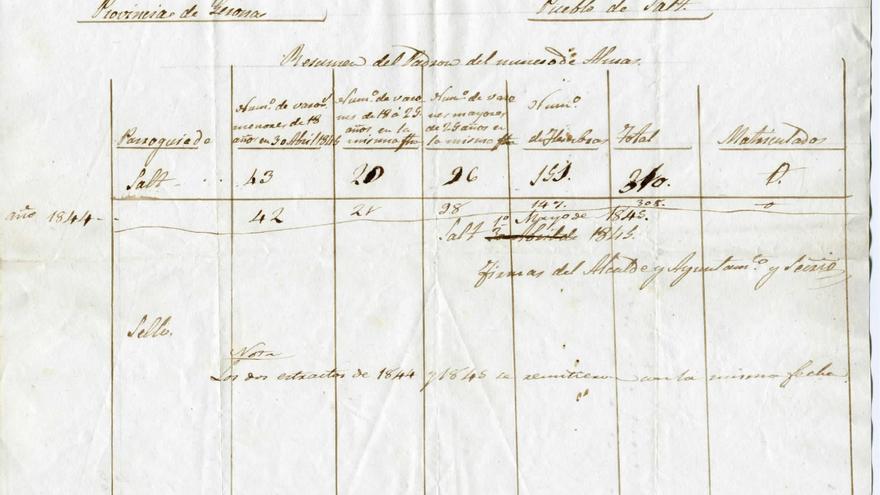 Provincia de Gerona
Pueblo de Salt.
Resumen del Padron del numero de Almas.
Parroquia de
Num.º de varon.s menores de 18 años en 30 Abril 1845
Num.º de varones de 18 á 25 años, en la misma fha
Num.º de varones mayores de 25 años en la misma fha
Num.º de Hembras
Total
Matriculados
Salt 43 20 96 151. 310. 0.
año 1844 - 42 21 98 147. 308. 0
Salt 1º Mayo de 1845.
30 Abril de 1845.
Firmas del Alcalde y Ayuntam.to y Sêrio
Sello.
Nota
Los dos estractos de 1844 y 1845 se remitieron con la misma fecha.